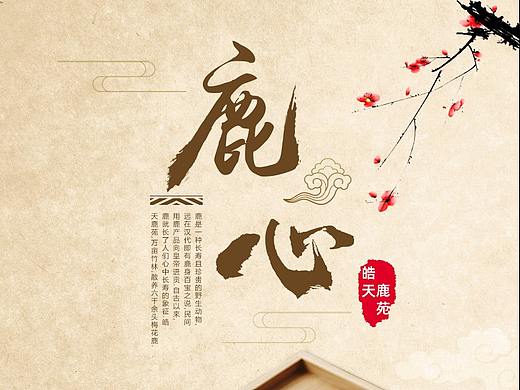 鹿心
鹿是一种长寿且珍贵的野生动物
远在汉代即有鹿身百宝之说 民间
用鹿产品向皇帝进贡 自古以来
鹿就长了人们心中长寿的象征 皓
天鹿苑 万亩竹林 散养六千余头梅花鹿
皓天
鹿苑